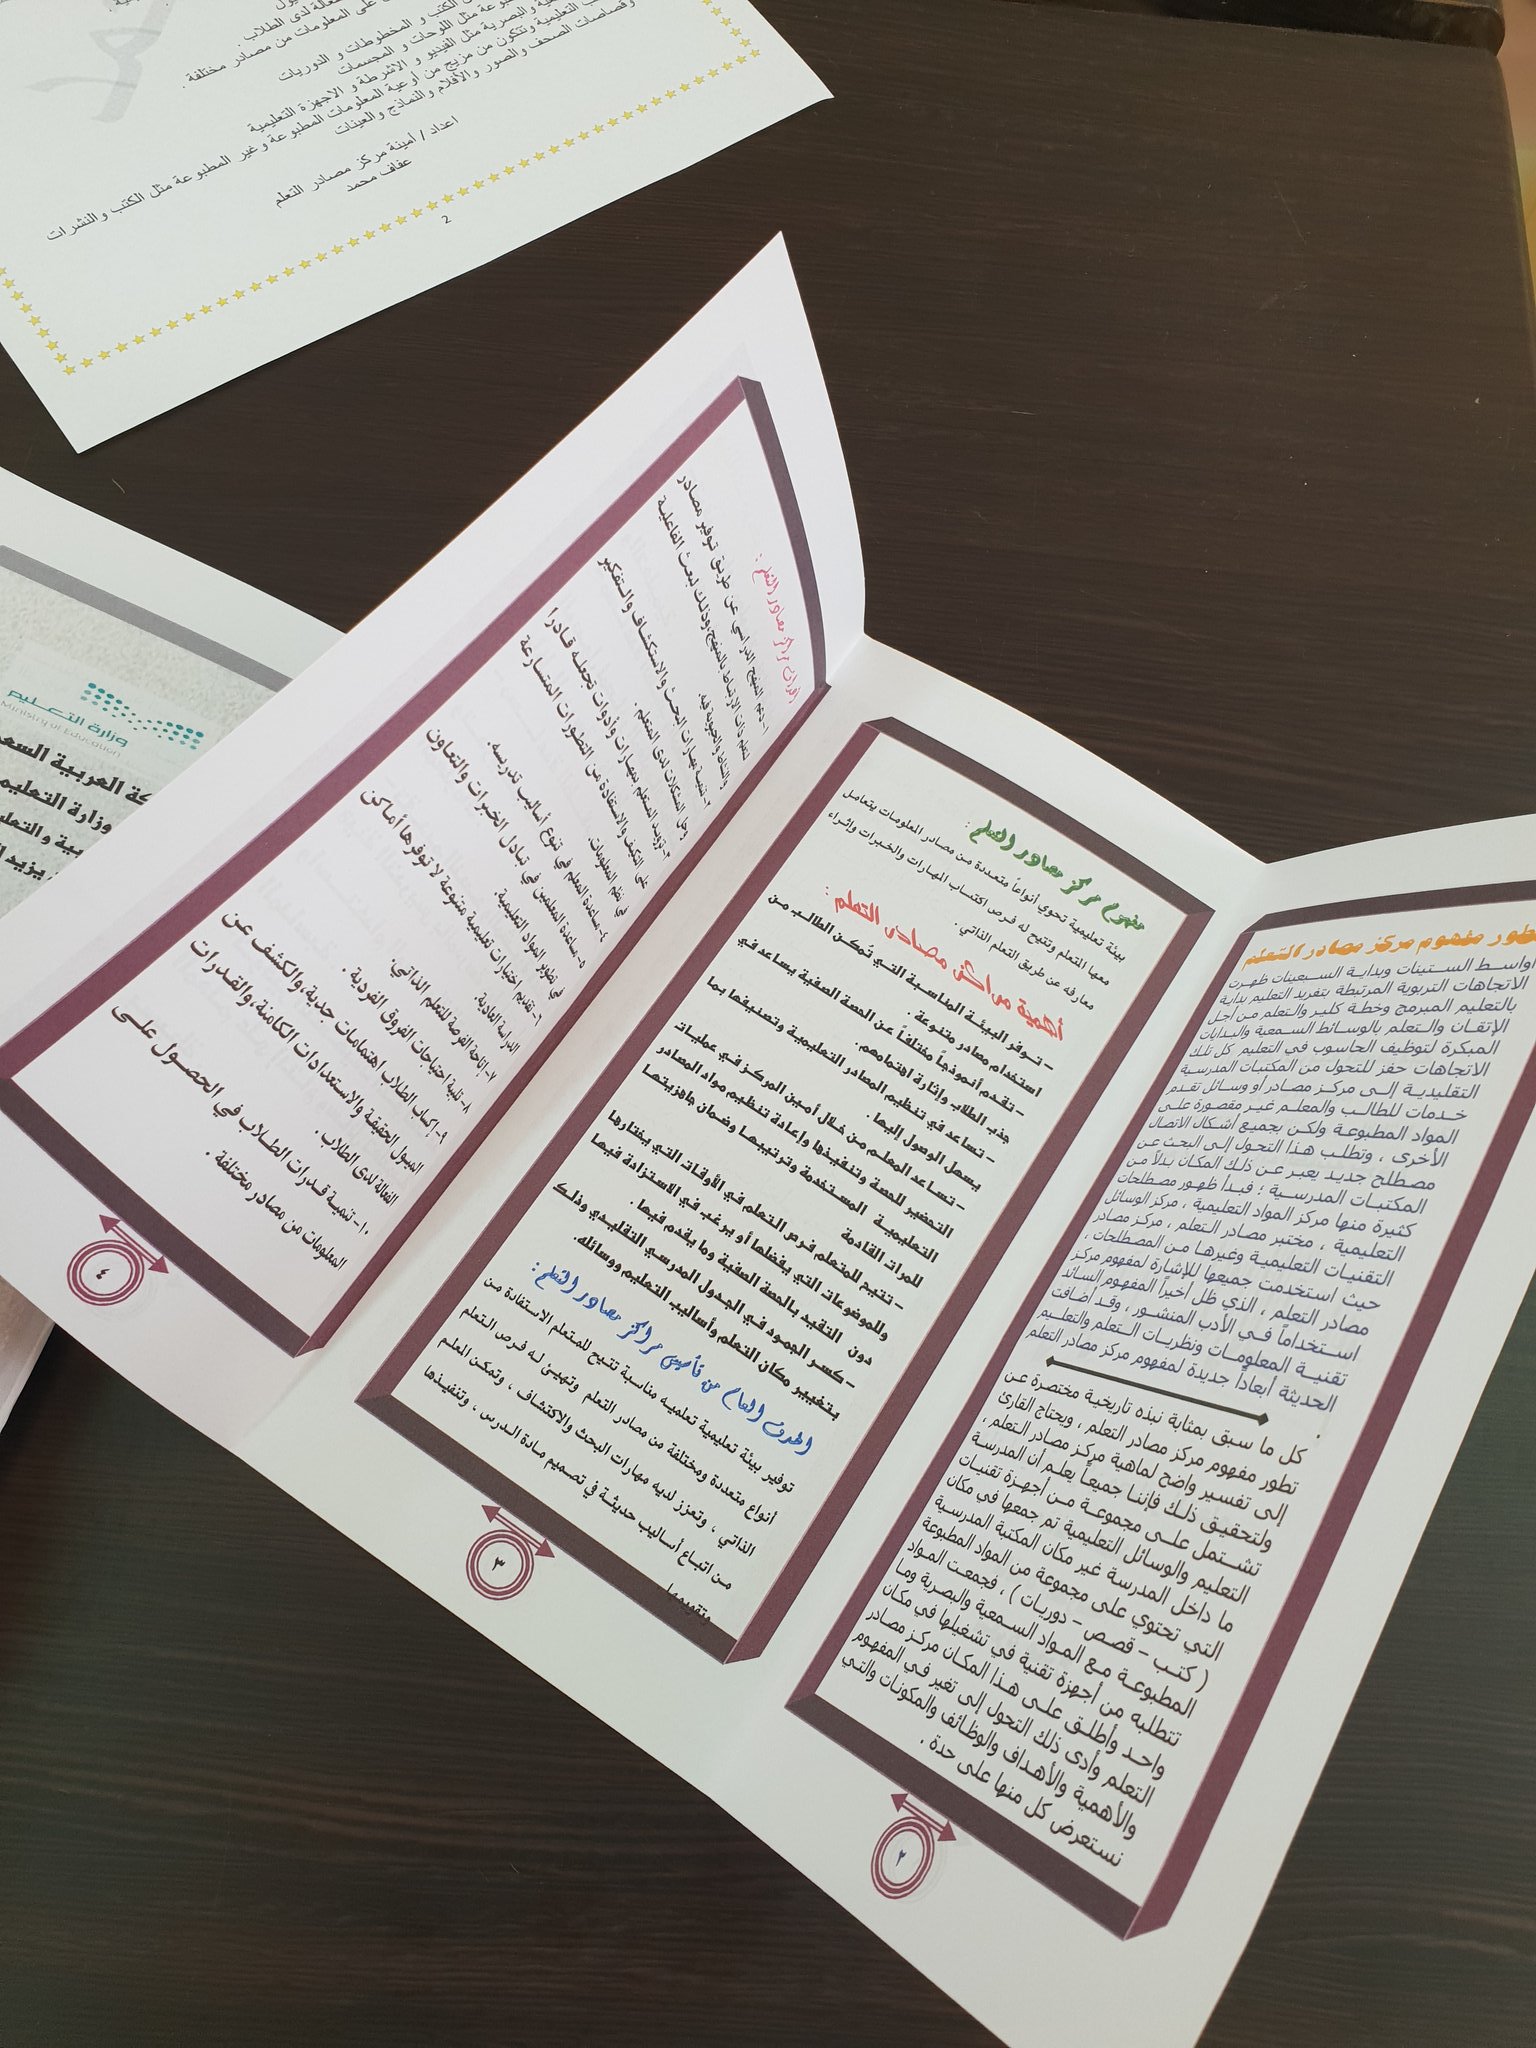 تطور مفهوم مركز مصادر التعلم
أواسط الستينات وبداية السبعينات ظهرت
الاتجاهات التربوية المرتبطة بتفريد التعليم بداية
بالتعليم المبرمج وخطة كلير والتعلم من أجل
الإتقان والتعلم بالوسائط السمعية والبدايات
المبكرة لتوظيف الحاسوب في التعليم كل تلك
الاتجاهات حفز للتحول من المكتبات المدرسية
التقليدية إلى مركز مصادر أو وسائل تقدم
خدمات للطالب والمعلم غير مقصورة على
المواد المطبوعة ولكن بجميع أشكال الاتصال
الأخرى ، وتطلب هذا التحول إلى البحث عن
مصطلح جديد يعبر عن ذلك المكان بدلاً من
المكتبات المدرسية ؛ فبدأ ظهور مصطلحات
كثيرة منها مركز المواد التعليمية ، مركز الوسائل
التعليمية ، مختبر مصادر التعلم ، مركز مصادر
التقنيات التعليمية وغيرها من المصطلحات ،
حيث استخدمت جميعها للإشارة لمفهوم مركز
مصادر التعلم ، الذي ظل أخيراً المفهوم السائد
استخداماً في الأدب المنشور ، وقد أضافت
تقنية المعلومات ونظريات التعلم والتعليم
الحديثة أبعاداً جديدة لمفهوم مركز مصادر التعلم
.
كل ما سبق بمثابة نبذه تاريخية مختصرة عن
تطور مفهوم مركز مصادر التعلم ، ويحتاج القارئ
إلى تفسير واضح لماهية مركز مصادر التعلم ،
ولتحقيق ذلك فإننا جميعاً يعلم أن المدرسة
تشتمل على مجموعة من أجهزة تقنيات
التعليم والوسائل التعليمية تم جمعها في مكان
ما داخل المدرسة غير مكان المكتبة المدرسية
التي تحتوي على مجموعة من المواد المطبوعة
( كتب – قصص – دوريات ) ، فجمعت المواد
المطبوعة مع المواد السمعية والبصرية وما
تتطلبه من أجهزة تقنية في تشغيلها في مكان
واحد وأطلق على هذا المكان مركز مصادر
التعلم وأدى ذلك التحول إلى تغير في المفهوم
والأهمية والأهداف والوظائف والمكونات والتي
نستعرض كل منها على حدة .
٢
مفهوم مركز مصادر التعلم :
بيئة تعليمية تحوي أنواعاً متعددة من مصادر المعلومات يتعامل
معها المتعلم وتتيح له فرص اكتساب المهارات والخبرات وإثراء
معارفه عن طريق التعلم الذاتي .
أهمية مراكز مصادر التعلم :
– توفر البيئة المناسبة التي تمكن الطالب من
استخدام مصادر متنوعة .
– تقدم أنموذجاً مختلفاً عن الحصة الصفية يساعد في
جذب الطلاب وإثارة اهتمامهم.
– تساعد في تنظيم المصادر التعليمية وتصنيفها بما
يسهل الوصول إليها .
– تساعد المعلم من خلال أمين المركز في عمليات
التحضير للحصة وتنفيذها وإعادة تنظيم مواد المصادر
التعليمية المستخدمة وترتيبها وضمان جاهزيتها
للمرات القادمة
– تتيح للمتعلم فرص التعلم في الأوقات التي يختارها
وللموضوعات التي يفضلها أو يرغب في الاستزادة فيها
دون التقيد بالحصة الصفية وما يقدم فيها .
– كسر الجمود في الجدول المدرسي التقليدي وذلك
بتغيير مكان التعلم وأساليب التعليم ووسائله.
الهدف العام من تأسيس مراكز مصادر التعلم :
توفير بيئة تعليمية تعلميه مناسبة تتيح للمتعلم الاستفادة من
أنواع متعددة ومختلفة من مصادر التعلم وتهيئ له فرص التعلم
الذاتي ، وتعزز لديه مهارات البحث والاكتشاف ، وتمكن المعلم
من اتباع أساليب حديثة في تصميم مادة الدرس ، وتنفيذها
وتقويمها
٣
أهداف مركز مصادر التعلم :
١- دعم المنهج الدراسي عن طريق توفير مصادر
تعلم ذات الارتباط بالمنهج وذلك لبعث الفاعلية
والنشاط والحيوية فيه
٢- تنمية مهارات البحث والاستكشاف والتفكير
وحل المشكلات لدى المتعلم.
٣- تزويد المتعلم بمهارات وأدوات تجعله قادرا
على التكيف والاستفادة من التطورات المتسارعة
في نظم المعلومات.
٤- مساعدة المعلم في تنوع أساليب تدريسه.
٥- مساعدة المعلمين في تبادل الخبرات والتعاون
في تطوير المواد التعليمية.
٦- تقديم اختيارات تعليمية متنوعة لا توفرها أماكن
الدراسة العادية.
٧- إتاحة الفرصة للتعلم الذاتي.
٨- تلبية احتياجات الفروق الفردية .
٩- إكساب الطلاب اهتمامات جديدة، والكشف عن
الميول الحقيقة والاستعدادات الكامنة، والقدرات
الفعالة لدى الطلاب .
١٠- تنمية قدرات الطلاب في الحصول على
المعلومات من مصادر مختلفة .
٤
على المعلومات من مصادر مختلفة .
الكتب و المخطوطات و الدوريات
مثل اللوحات و المجسمات
والبصرية مثل الفيديو و الاشرطة و الاجهزة التعليمية
التعليمية وتتكون من مزيج من أوعية المعلومات المطبوعة وغير المطبوعة مثل الكتب والنشرات
وقصاصات الصحف والصور والأفلام والنماذج والعينات
اعداد / امينة مركز مصادر التعلم
عفاف محمد
2
وزارة التعليم
Ministry of Education
العربية
وزارة التعليم
يزيد